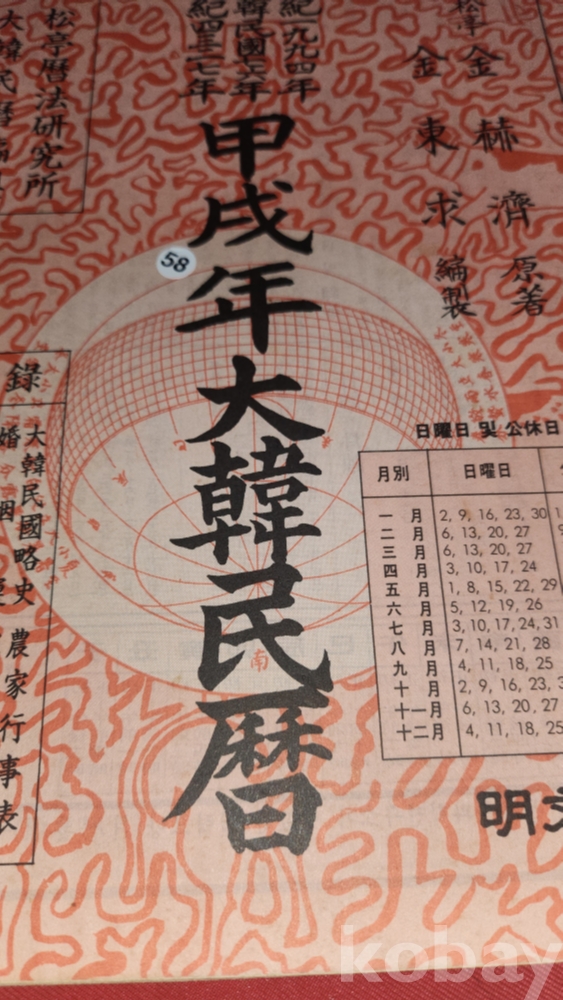 松亭曆法研究所
大韓民曆
紀一九九四年
韓民國七六年
紀四三二七年
金赫濟 原著
金東求 編製
甲戌年大韓民曆
58
南
日曜日 및 公休日
月別 日曜日
一月 2, 9, 16, 23, 30
二月 6, 13, 20, 27
三月 6, 13, 20, 27
四月 3, 10, 17, 24
五月 1, 8, 15, 22, 29
六月 5, 12, 19, 26
七月 3, 10, 17, 24, 31
八月 7, 14, 21, 28
九月 4, 11, 18, 25
十月 2, 9, 16, 23, 3
十一月 6, 13, 20, 27
十二月 4, 11, 18, 25
錄
大韓民國略史
農家行事表
婚姻
明文
kobay